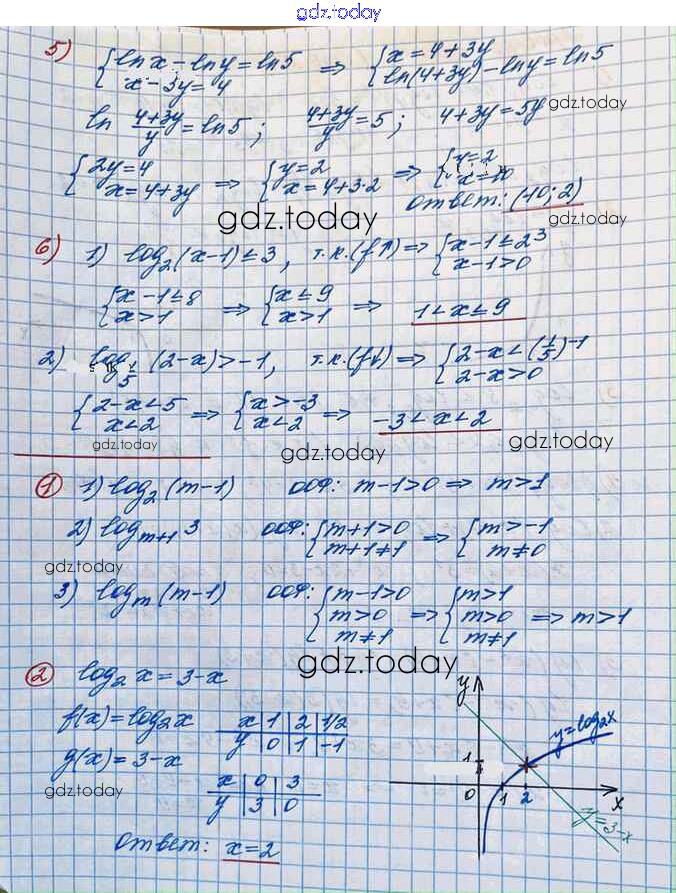 gdz.today
5) { ln x - ln y = ln 5 ⇒ { x = 4 + 3y
x - 3y = 4 ln(4+3y) - ln y = ln 5
gdz.today
ln (4+3y)/y = ln 5 ; (4+3y)/y = 5 ; 4+3y = 5y
{ 2y = 4 ⇒ { y = 2 ⇒ { y = 2
x = 4+3y x = 4+3·2 x = 10
Ответ: (10; 2)
gdz.today
gdz.today
6) 1) log₂(x-1) ≤ 3, т.к. (f↑) ⇒ { x-1 ≤ 2³
x-1 > 0
{ x-1 ≤ 8 ⇒ { x ≤ 9 ⇒ 1 < x ≤ 9
x > 1 x > 1
2) log_{1/5} (2-x) > -1, т.к. (f↓) ⇒ { 2-x < (1/5)⁻¹
2-x > 0
{ 2-x < 5 ⇒ { x > -3 ⇒ -3 < x < 2
x < 2 x < 2
gdz.today
gdz.today
gdz.today
1 1) log₂(m-1) ООФ: m-1>0 ⇒ m>1
2) log_{m+1} 3 ООФ: { m+1>0 ⇒ { m>-1
m+1≠1 m≠0
gdz.today
3) log_m (m-1) ООФ: { m-1>0 ⇒ { m>1 ⇒ m>1
m>0 m>0
m≠1 m≠1
gdz.today
2 log₂ x = 3-x
f(x) = log₂x x | 1 | 2 | 1/2
y | 0 | 1 | -1
g(x) = 3-x
x | 0 | 3
y | 3 | 0
gdz.today
Ответ: x = 2
y
y=log₂x
1
0 1 2 x
y=3-x